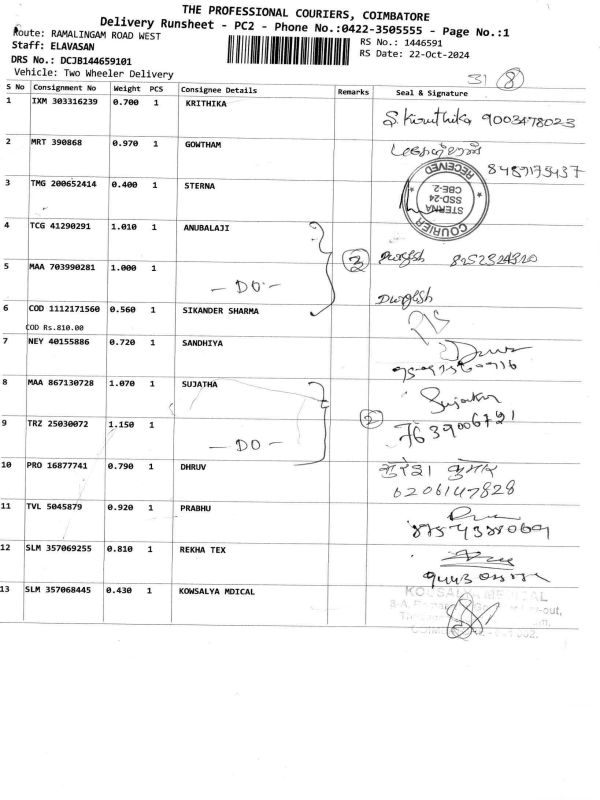 THE PROFESSIONAL COURIERS, COIMBATORE
Delivery Runsheet - PC2 - Phone No.:0422-3505555 - Page No.:1
Route: RAMALINGAM ROAD WEST
Staff: ELAVASAN
DRS No.: DCJB144659101
Vehicle: Two Wheeler Delivery
RS No.: 1446591
RS Date: 22-Oct-2024
31 8
S No Consignment No Weight PCS Consignee Details Remarks Seal & Signature
1 IXM 303316239 0.700 1 KRITHIKA S. Kiruthika 9003478023
2 MRT 390868 0.970 1 GOWTHAM
3 TMG 200652414 0.400 1 STERNA
STERNA
SSD-24
CBE-2
COURIER RECEIVED
4 TCG 41290291 1.010 1 ANUBALAJI
3
5 MAA 703990281 1.000 1 - DO -
6 COD 1112171560 0.560 1 SIKANDER SHARMA
COD Rs.810.00
7 NEY 40155886 0.720 1 SANDHIYA
8 MAA 867130728 1.070 1 SUJATHA Sujatha
2
7639006721
9 TRZ 25030072 1.150 1 - DO -
10 PRO 16877741 0.790 1 DHRUV
6206147828
11 TVL 5045879 0.920 1 PRABHU
12 SLM 357069255 0.810 1 REKHA TEX
13 SLM 357068445 0.430 1 KOWSALYA MDICAL
KOUSALYA MEDICAL